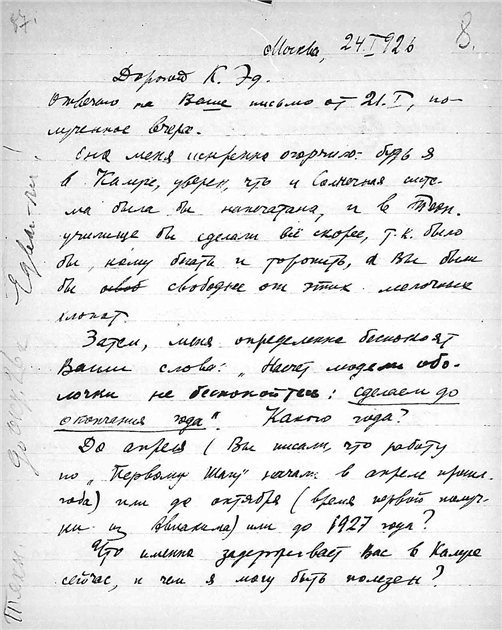 8.
Москва, 24.I 1926
Дорогой К. Эд.
Отвечаю на Ваше письмо от 21.I, по-
лученное вчера.
Оно меня искренно огорчило: будь я
в Калуге, уверен, что и Солнечная систе-
ма была бы напечатана, и в Техн.
училище бы сделали всё скорее, т.к. было
бы, кому бегать и торопить, а Вы были
бы свободнее от этих мелочных
хлопот.
Затем, меня определенно беспокоят
Ваши слова: "Насчет модели обо-
лочки не беспокойтесь: сделаем до
окончания года". Какого года?
До апреля (Вы писали, что работу
по "Первому Шагу" начали в апреле прошл.
года) или до октября (время первой получ-
ки из Авиахима) или до 1927 года?
Что именно задерживает Вас в Калуге
сейчас, и чем я могу быть полезен?